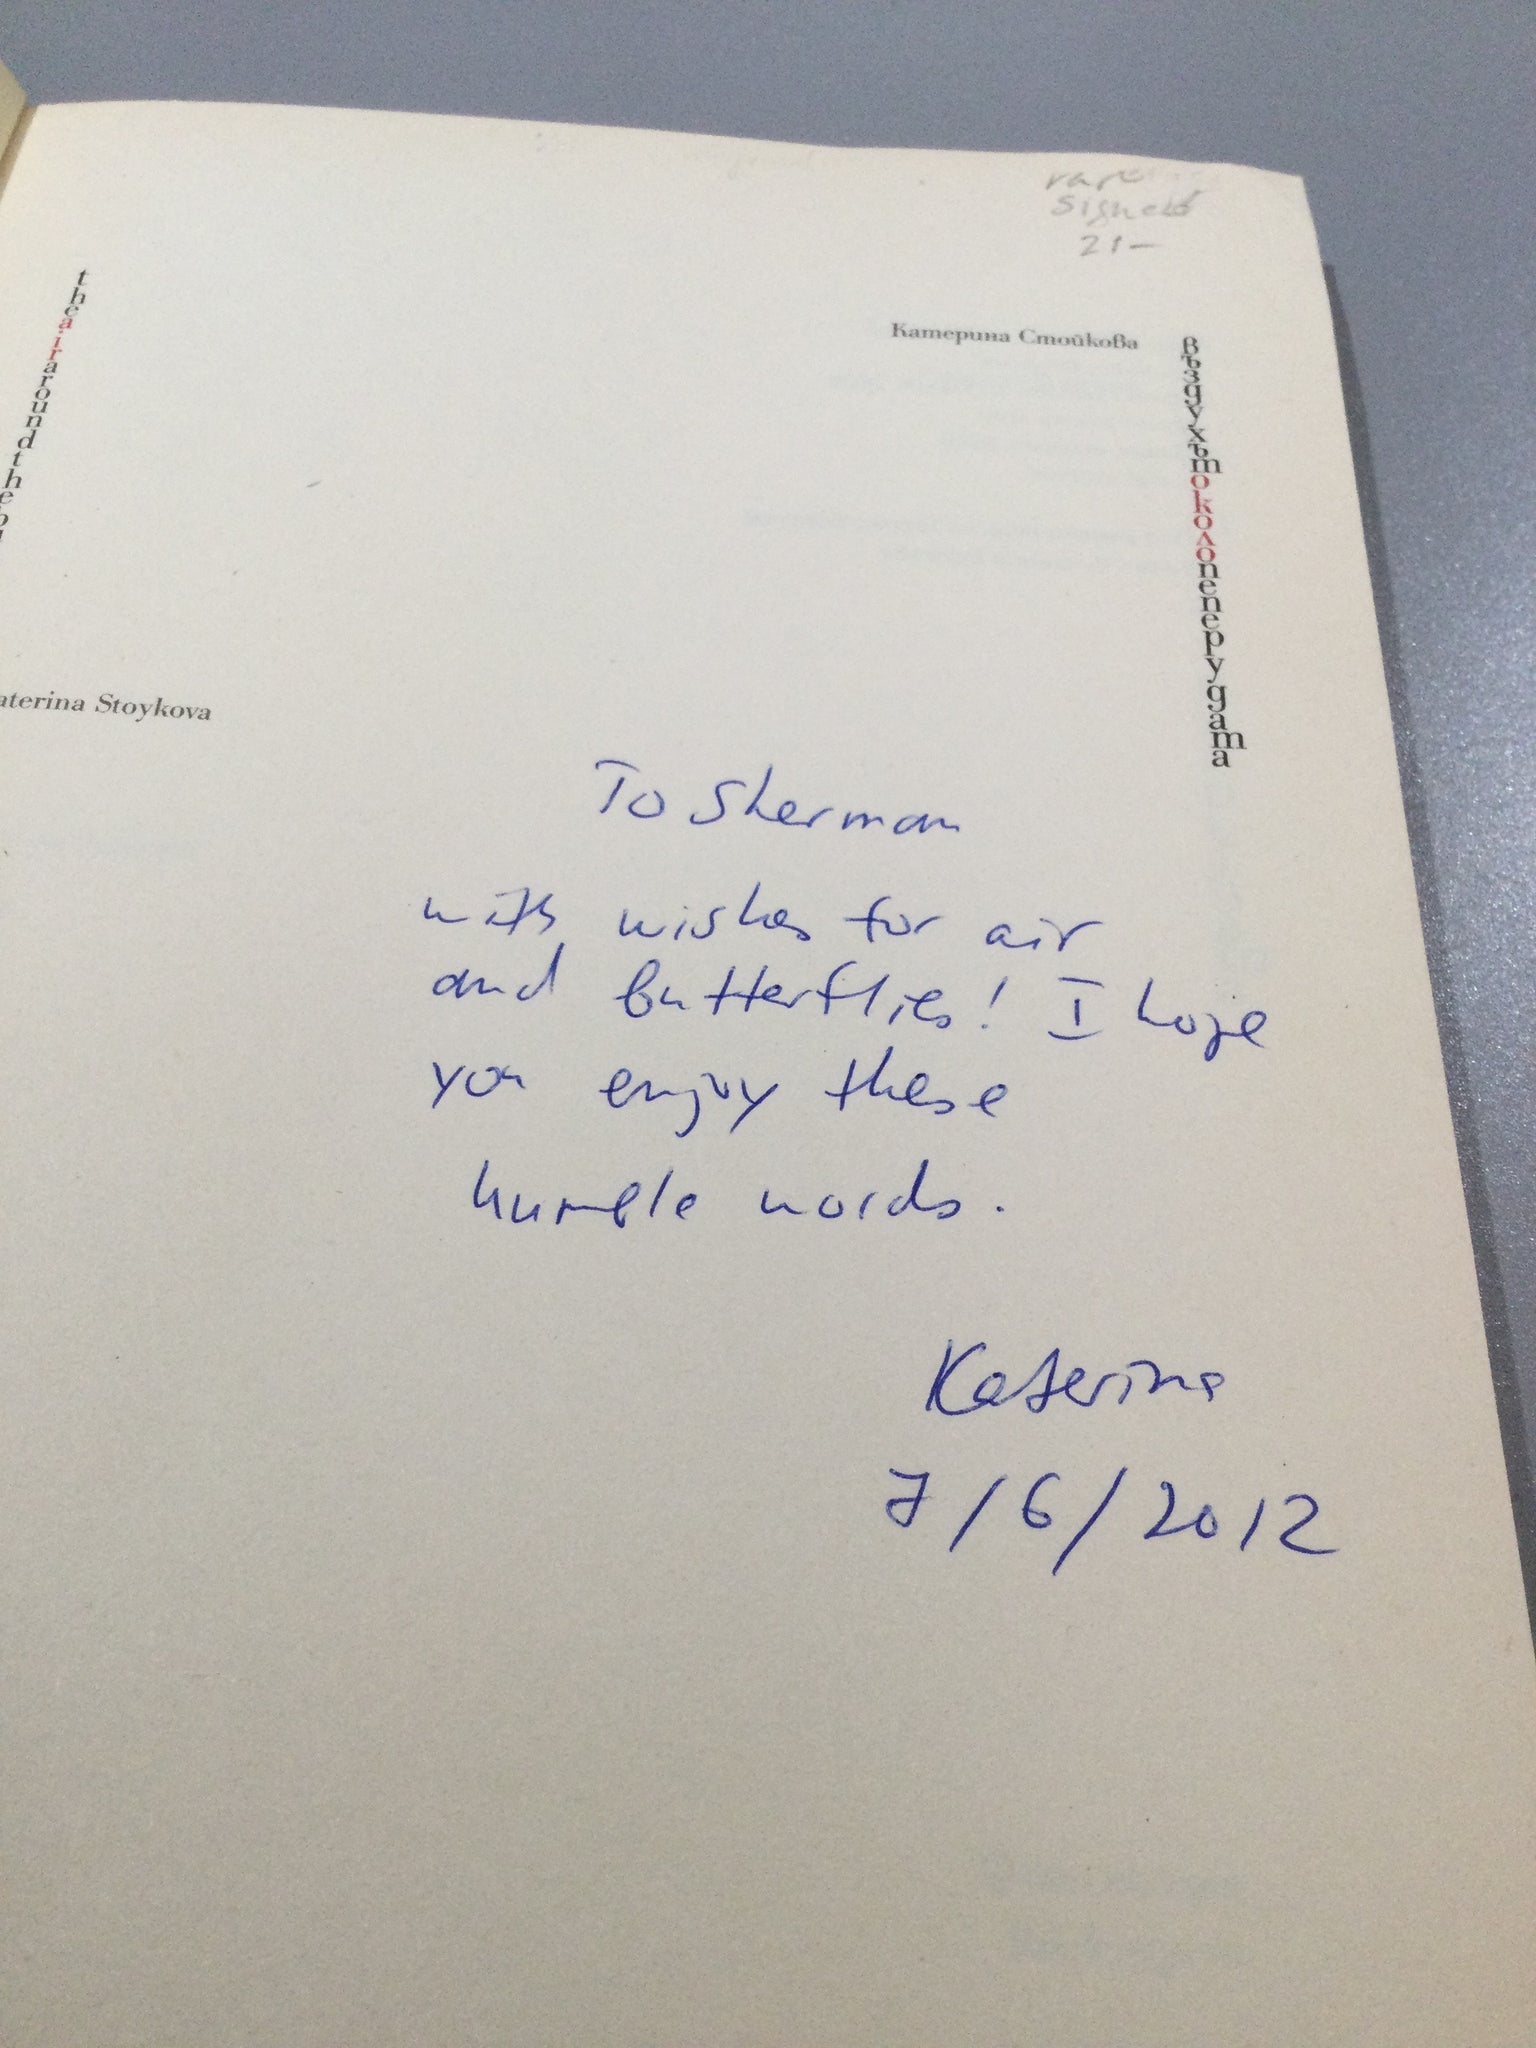 theairaroundthebu
aterina Stoykova
rare
signed
21-
Катерина Стойкова
въздухътоколопеперудата
To Sherman
with wishes for air
and butterflies! I hope
you enjoy these
humble words.
Katerina
7/6/2012